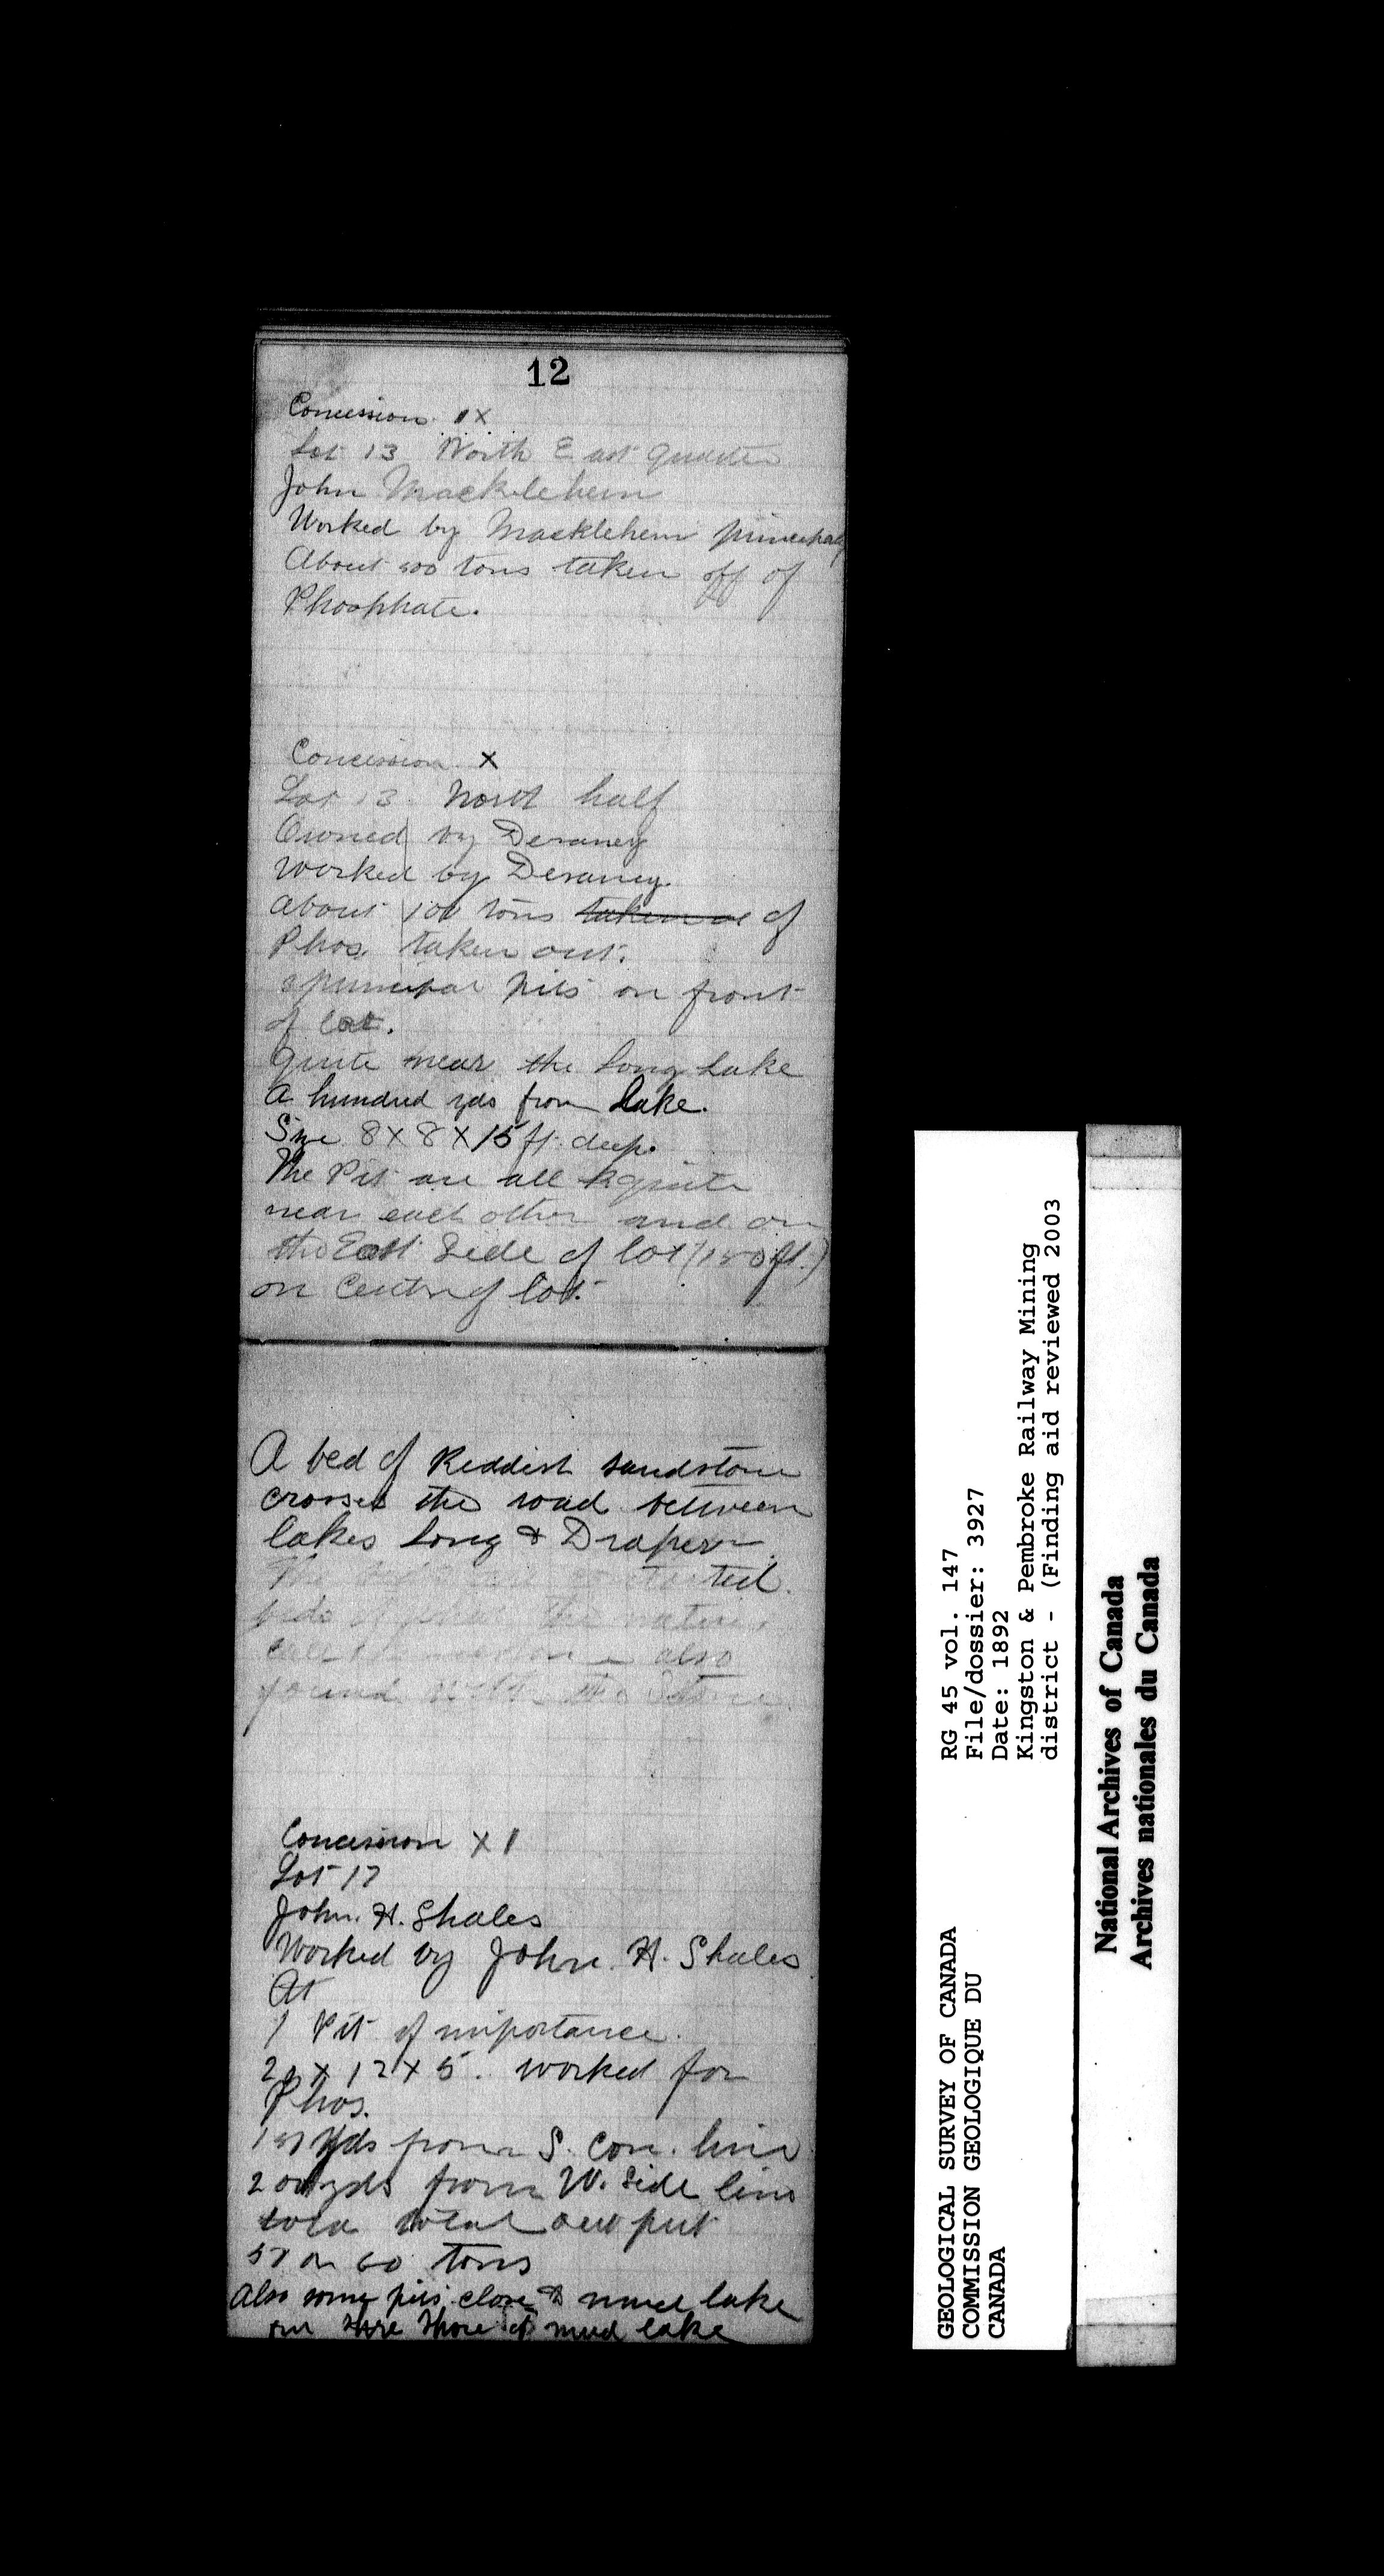 12
Concession IX
Lot 13 North East quarter
John Macklehem
Worked by Macklehem
About 100 tons taken off of
Phosphate.
Concession X
Lot 13 North half
Owned by Deraney
Worked by Deraney.
about 100 tons of
Phos. taken out.
3 principal pits on front
of lot.
Quite near the Long Lake
A hundred yds from lake.
Size 8 X 8 X 15 ft. deep.
The Pit are all quite
near each other and on
the East Side of lot (150 ft.)
on Centre of lot.
A bed of Reddish sandstone
crosses the road between
lakes Long & Draper
The
beds the native
also
found with the Stone
Concession XI
Lot 17
John. H. Shales
Worked by John. H. Shales
At
1 Pit of importance.
20 X 12 X 5. worked for
Phos.
yds from S. Con. line
200 yds from W. Side line
total out put
50 or 60 tons
Also some pits close to mud lake
on shore of mud lake
GEOLOGICAL SURVEY OF CANADA
COMMISSION GEOLOGIQUE DU
CANADA
RG 45 vol. 147
File/dossier: 3927
Date: 1892
Kingston & Pembroke Railway Mining
district - (Finding aid reviewed 2003
National Archives of Canada
Archives nationales du Canada